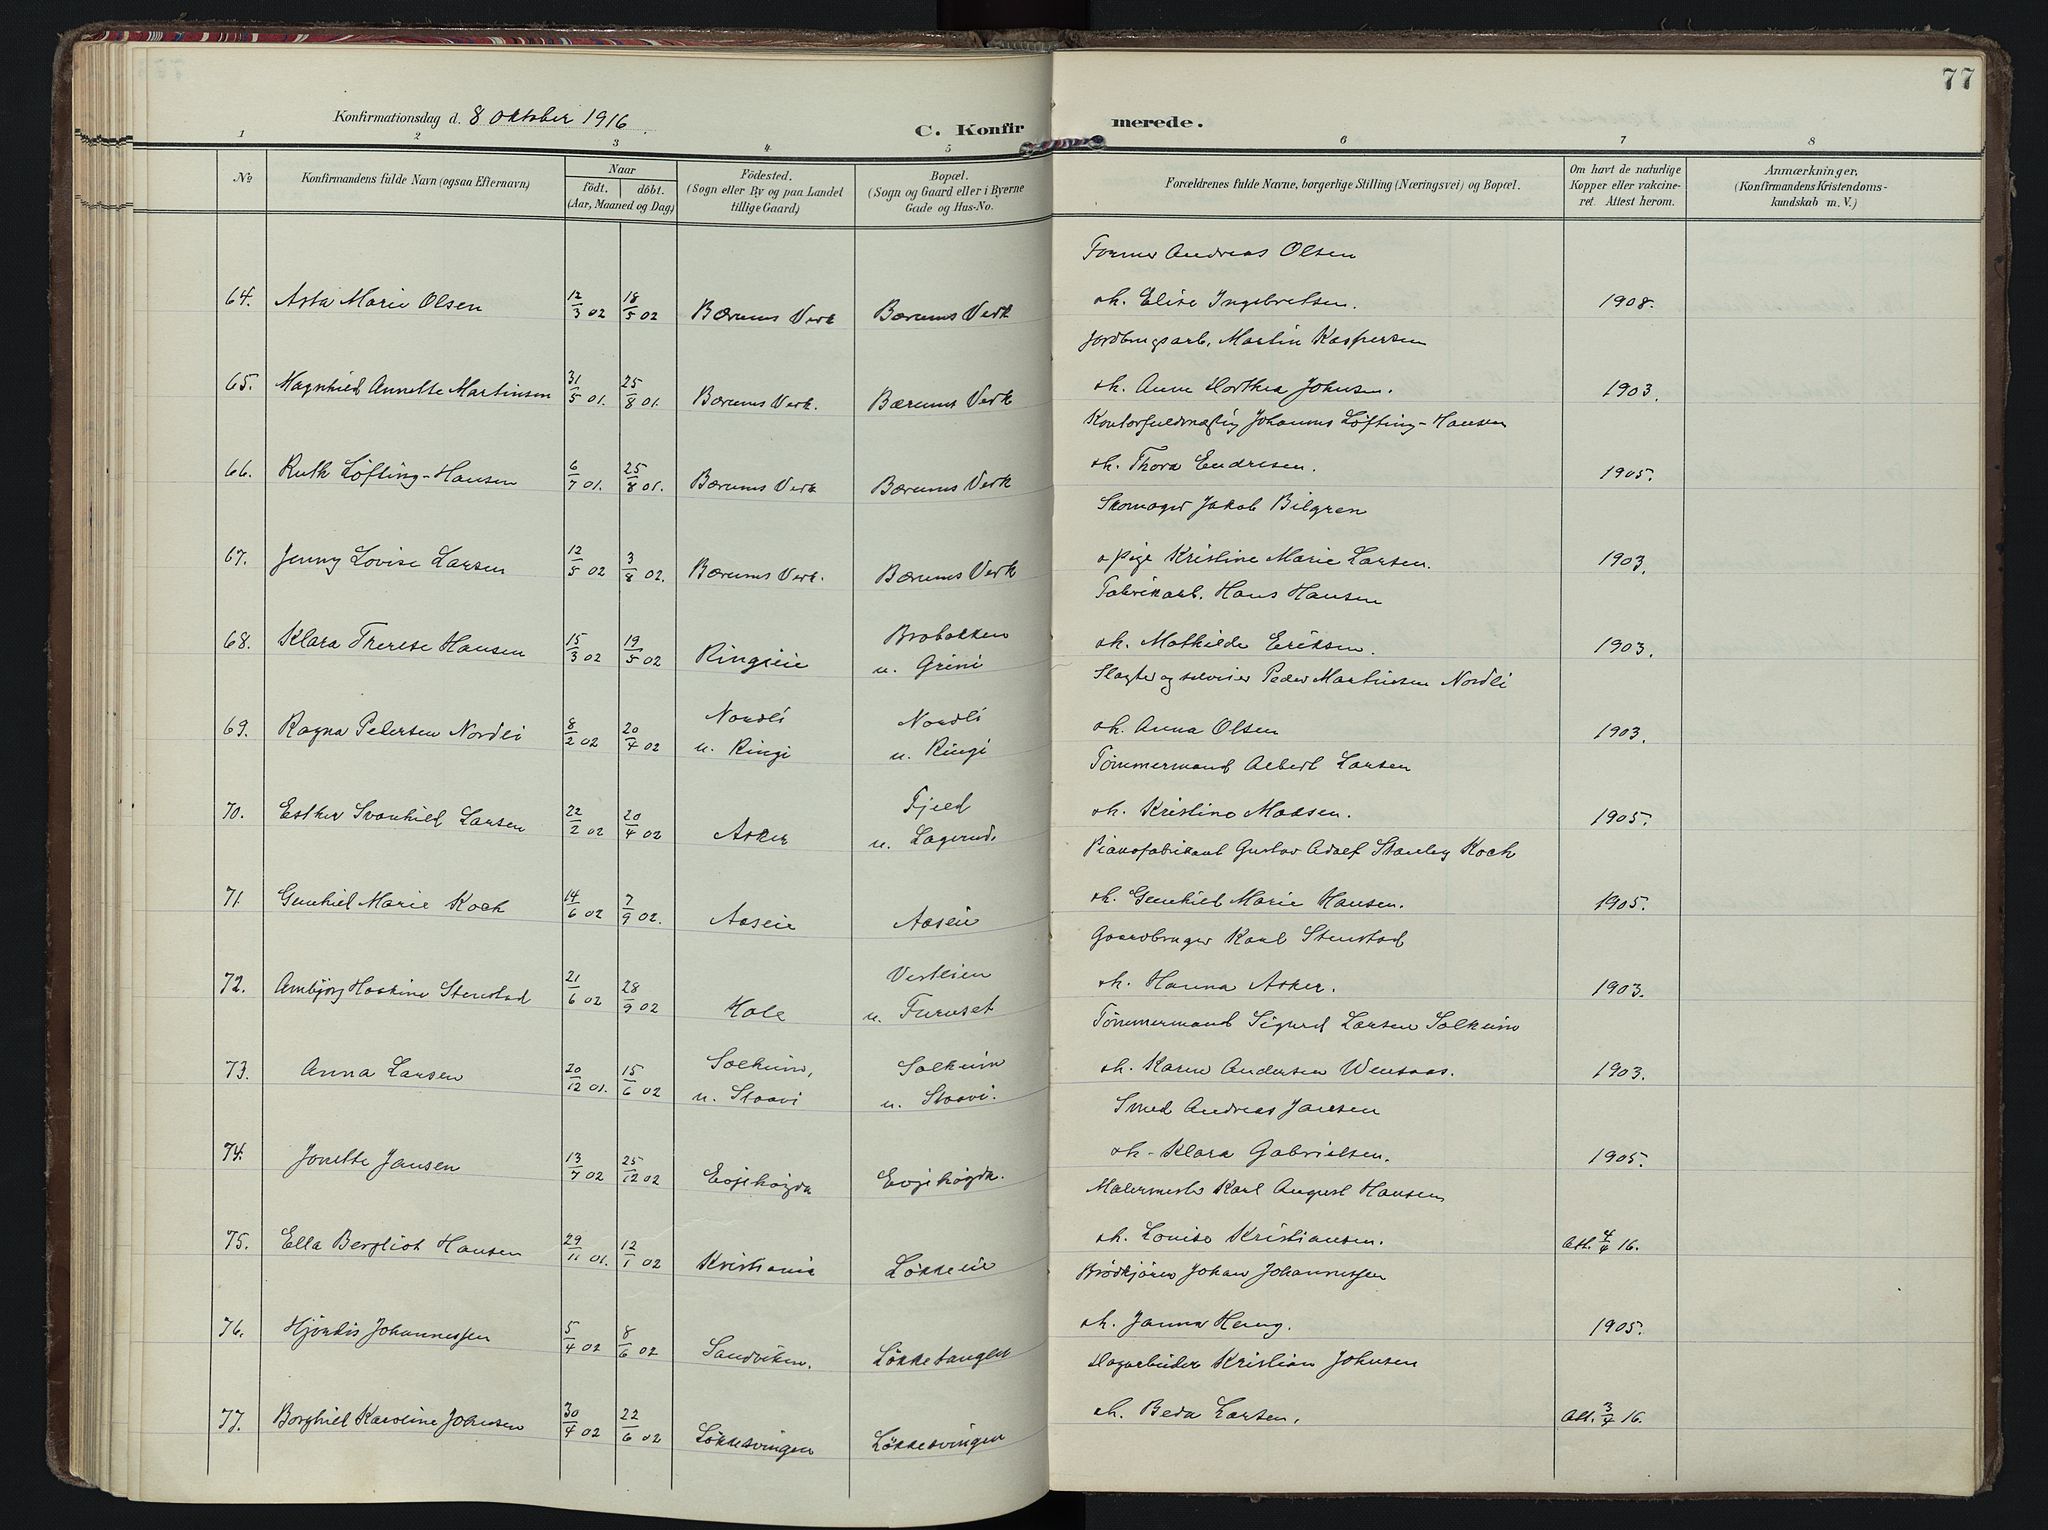 77
Konfirmationsdag d. 8 oktober 1916
C. Konfirmerede.
1 2 3 4 5 6 7 8
No
Konfirmandens fulde Navn (ogsaa Efternavn)
Naar
födt. döbt.
(Aar, Maaned og Dag)
Födested.
(Sogn eller By og paa Landet
tillige Gaard)
Bopæl.
(Sogn og Gaard eller i Byerne
Gade og Hus-No.
Forældrenes fulde Navne, borgerlige Stilling (Næringsvei) og Bopæl.
Om havt de naturlige
Kopper eller vakcine-
ret. Attest herom.
Anmærkninger,
(Konfirmandens Kristendoms-
kundskab m. V.)
Former Andreas Olsen
64. Asta Marie Olsen 12/3 02 18/5 02 Bærums Verk Bærums Verk oh. Elise Ingebretsen. 1908.
Jordbrugsarb. Martin Kaspersen
65. Magnhild Annette Martinsen 31/5 01. 25/8 01. Bærums Verk. Bærums Verk oh. Anne Dorthea Johnsen. 1903.
Kontorfuldmægtig Johannes Løfting-Hansen
66. Ruth Løfting-Hansen 6/7 01. 25/8 01. Bærums Verk Bærums Verk oh. Thora Endresen. 1905.
Skomager Jakob Bilgren
67. Jenny Lovise Larsen 12/5 02 3/8 02. Bærums Verk. Bærums Verk o pige Kristine Marie Larsen. 1903.
Fabrikarb. Hans Hansen
68. Klara Therese Hansen 15/3 02 19/5 02 Ringieie Brobakken
u. Grini oh. Mathilde Eriksen. 1903.
Slagter og selveier Peder Martinsen Nordli
69. Ragna Pedersen Nordli 8/2 02 20/4 02 Nordli
u. Ringi Nordli
u. Ringi oh. Anna Olsen 1903.
Tömmermand Albert Larsen
70. Esther Svanhild Larsen 22/2 02 20/4 02 Asker Fjeld
u. Lagerud. oh. Kristine Madsen. 1905.
Pianofabrikant Gustav Adolf Stanley Koch
71. Gunhild Marie Koch 14/6 02 7/9 02. Aaseie Aaseie oh. Gunhild Marie Hansen. 1905.
Gaardbruger Karl Stenstad
72. Arnbjörg Haakine Stenstad 21/6 02 28/9 02 Hole Vestlien
u. Furuset oh. Hanna Asker. 1903.
Tömmermand Sigurd Larsen Solheim
73. Anna Larsen 20/12 01. 15/6 02 Solheim,
u. Staavi Solheim
u. Staavi. oh. Karen Andersen Wensaas. 1903.
Smed Andreas Jansen
74. Jonette Jansen 13/7 02 25/12 02 Evjehögda Evjehögda. oh. Klara Gabrielsen. 1905.
Malermester Karl August Hansen
75. Ella Bergliot Hansen 29/11 01. 12/1 02 Kristiania Løkkeeie oh. Louise Kristiansen. Att. 4/4 16.
Brödkjörer Johan Johannessen
76. Hjördis Johannessen 5/4 02 8/6 02 Sandviken. Løkketangen oh. Janna Haug. 1905.
Dagarbeider Kristian Johnsen
77. Borghild Karoline Johnsen 30/4 02 22/6 02 Løkkesvingen Løkkesvingen oh. Beda Larsen. Att. 3/4 16.